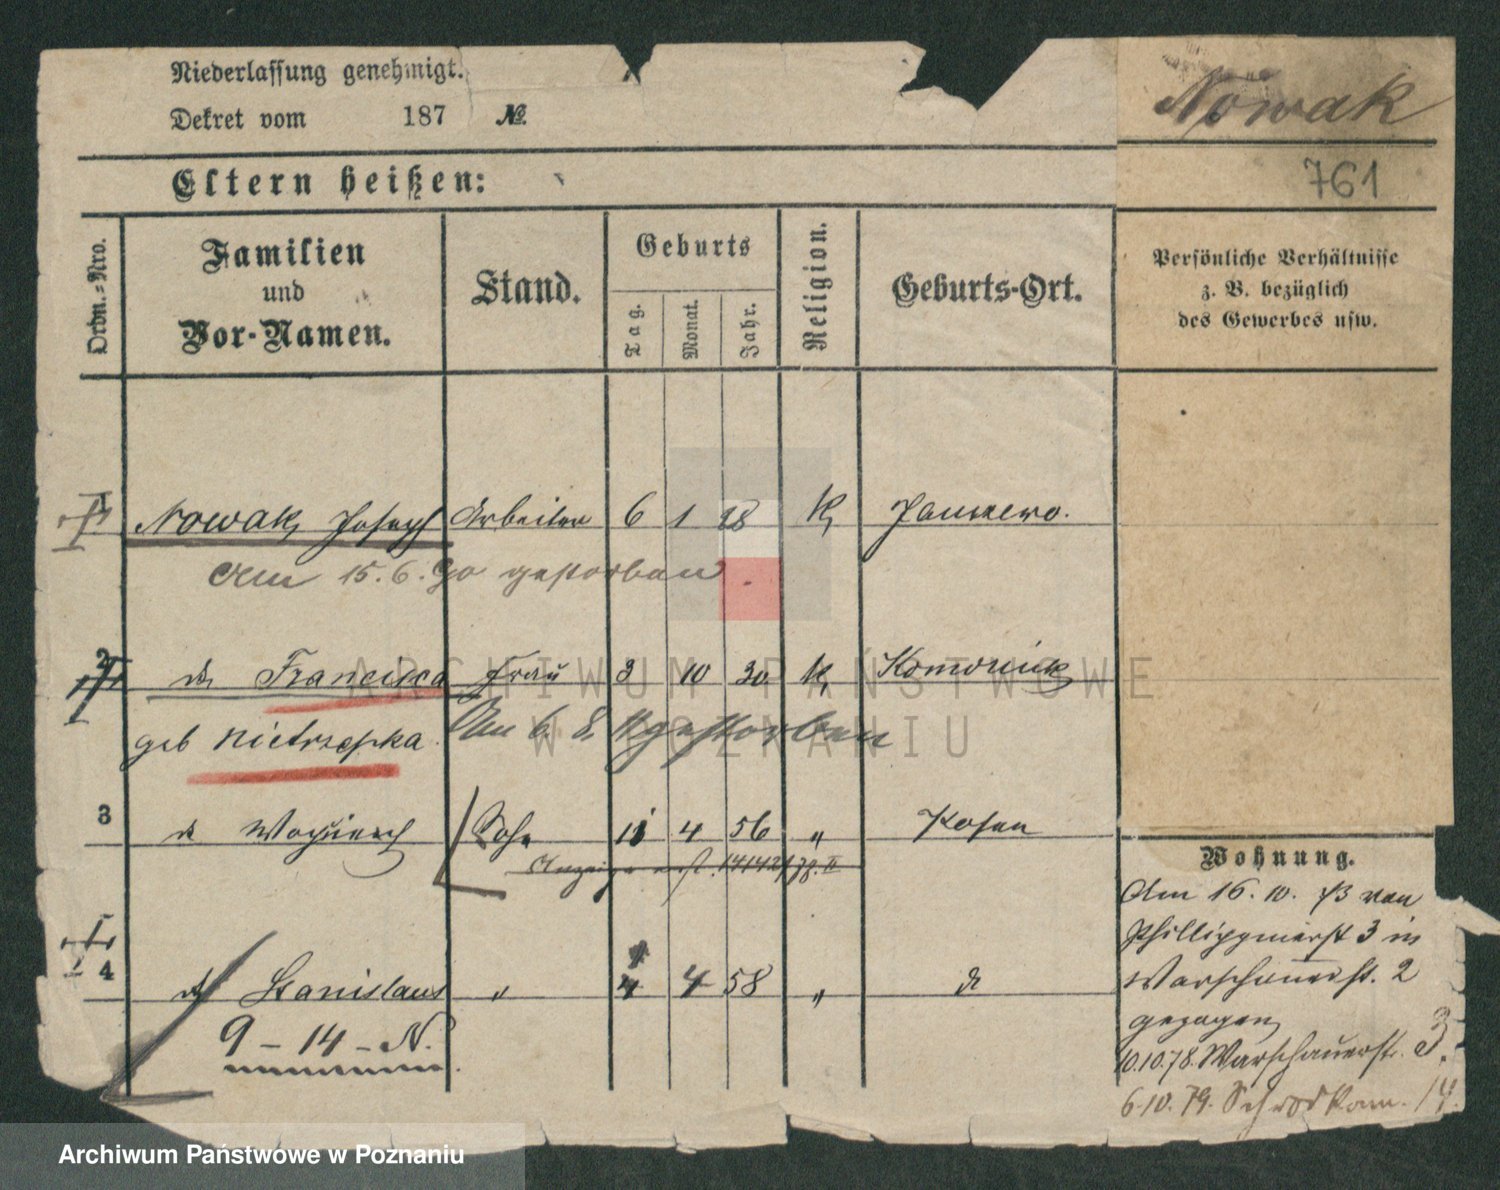 Niederlassung genehmigt.
Dekret vom 187 №
Nowak
761
Eltern heißen:
Ordn.=Nro.
Familien
und
Vor-Namen.
Stand.
Geburts
Tag.
Monat.
Jahr.
Religion.
Geburts-Ort.
Persönliche Verhältnisse
z. B. bezüglich
des Gewerbes usw.
Nowak Joseph Arbeiter 6 1 28 K
Am 15.6.90 gestorben.
2 do Francisca Frau 3 10 30 K Komornik
geb Nietrzepka Am 6. 8. gestorben
3 do Woyciech Sohn 11 4 56 " Posen
Anzeige 78.II
4 do Stanislaus " 4 4 58 " do
9 - 14 - N.
Wohnung.
Am 16.10.73 von
Phillippinerst 3 in
Warschauerst. 2
gezogen
10.10.78. Warschauerstr. 3.
6.10.79. Schrodkam. 14.
ARCHIWUM PAŃSTWOWE
W POZNANIU
Archiwum Państwowe w Poznaniu